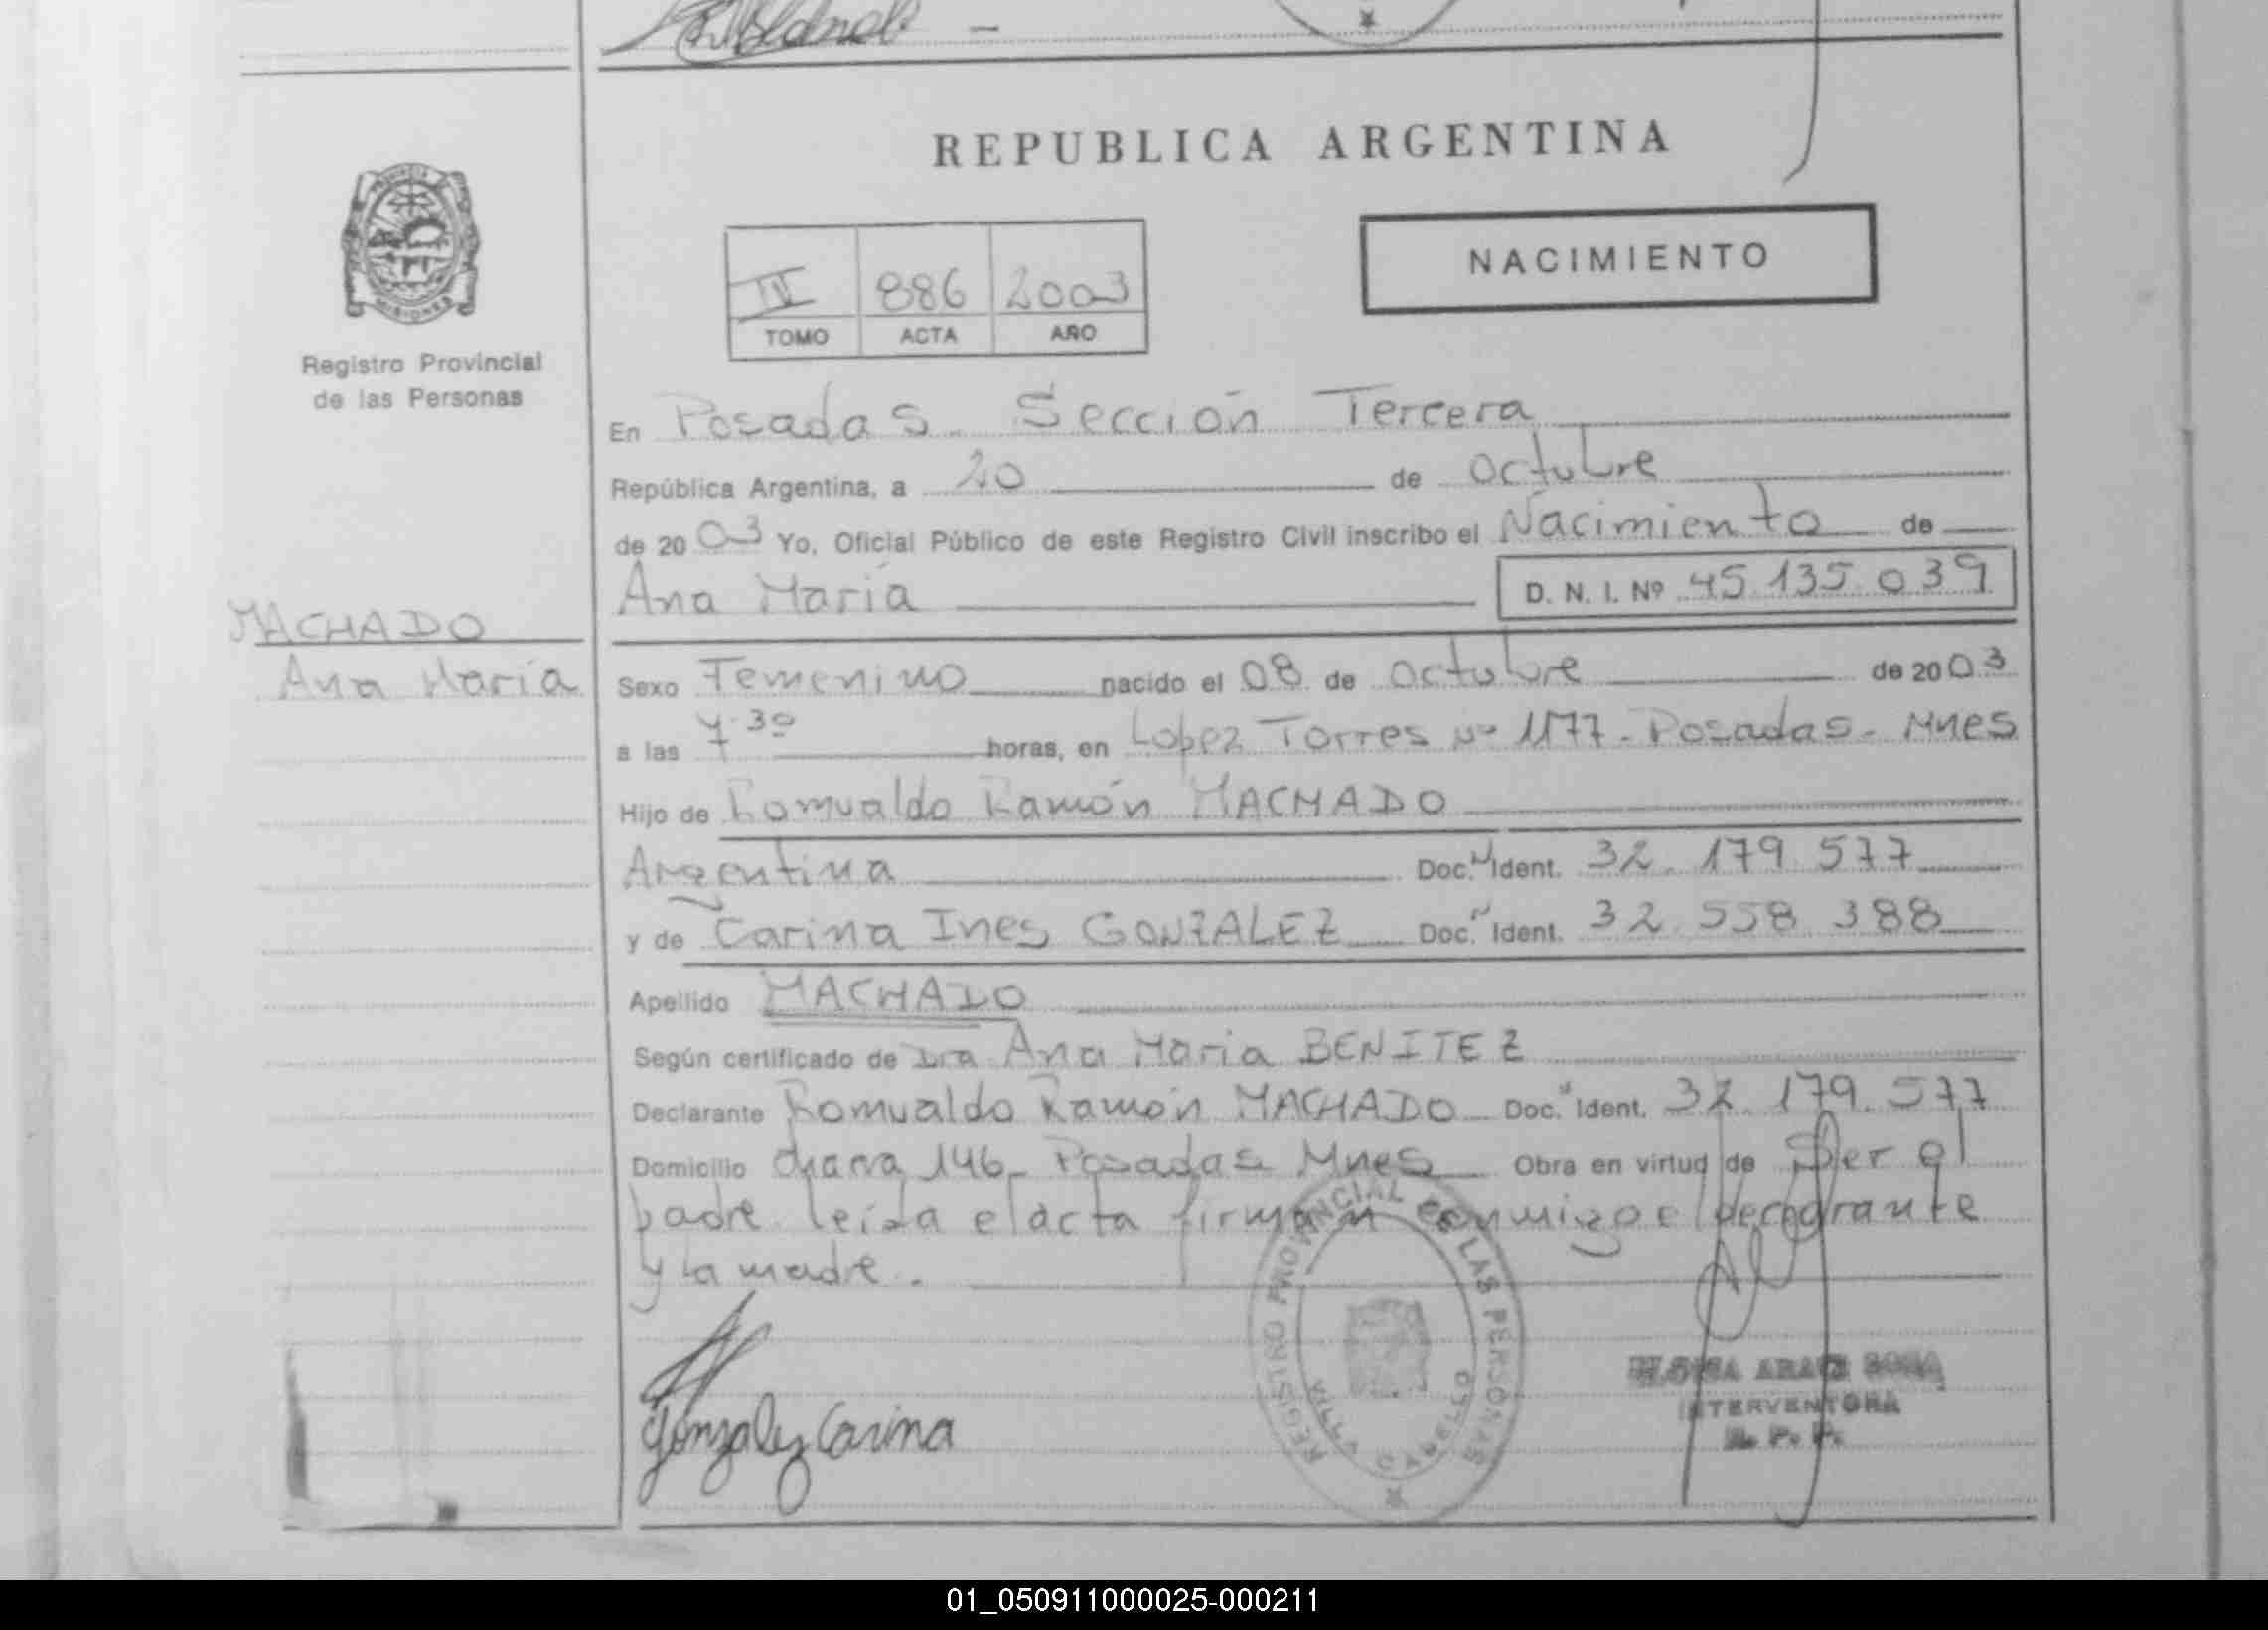 REPUBLICA ARGENTINA
PROVINCIA
MISIONES
Registro Provincial
de las Personas
NACIMIENTO
IV 886 2003
TOMO ACTA AÑO
En Posadas. Sección Tercera
República Argentina, a 20 de Octubre
de 2003 Yo, Oficial Público de este Registro Civil inscribo el Nacimiento de
Ana María D. N. I. Nº 45.135.039
MACHADO
Ana María
Sexo Femenino nacido el 08 de Octubre de 2003
a las 7.30 horas, en Lopez Torres Nº 1177 - Posadas - Mnes
Hijo de Romualdo Ramón MACHADO
Argentina Doc. N Ident. 32.179.577
y de Carina Ines GONZALEZ Doc. N Ident. 32.558.388
Apellido MACHADO
Según certificado de Dra Ana Maria BENITEZ
Declarante Romualdo Ramón MACHADO Doc. N Ident. 32.179.577
Domicilio chacra 146 - Posadas Mnes Obra en virtud de Ser el
padre leida el acta firman conmigo el declarante
y la madre.
Gonzalez Carina
REGISTRO PROVINCIAL DE LAS PERSONAS
VILLA CABELLO
INTERVENTORA
R. P. P.
01_050911000025-000211